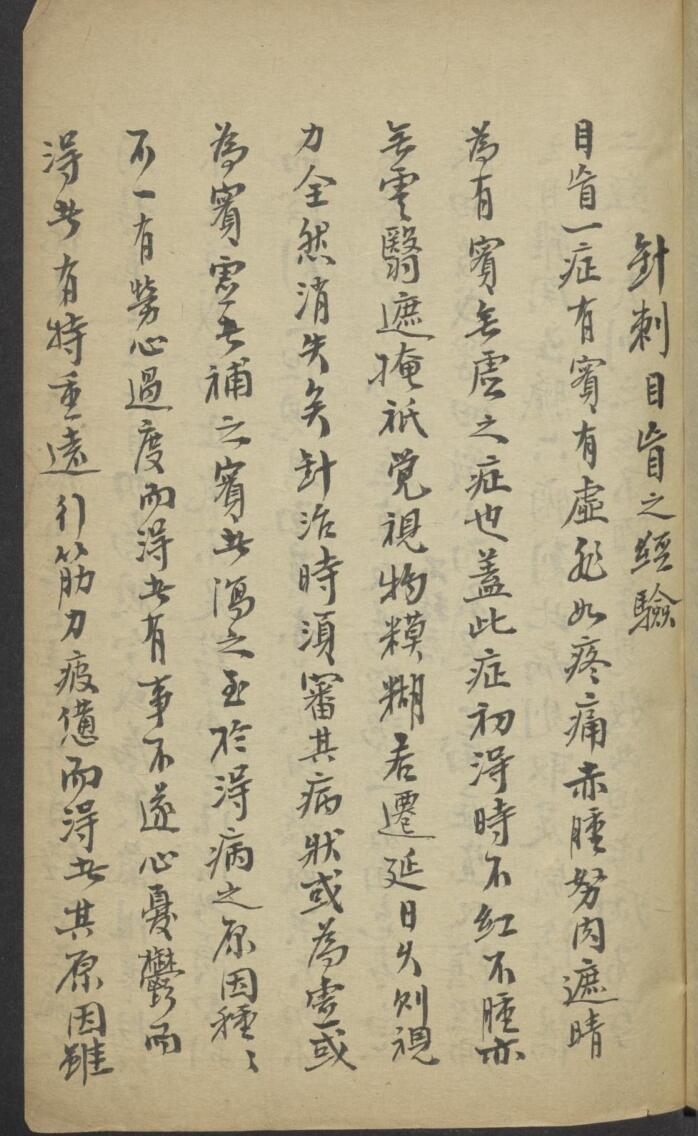 針刺目盲之經驗
目盲一症有實有虛非如疼痛赤腫努肉遮睛
為有實無虛之症也蓋此症初得時不紅不腫亦
無雲翳遮掩祇覺視物糢糊若遷延日久則視
力全然消失矣針治時須審其病狀或為虛或
為實虛者補之實者瀉之至於得病之原因種々
不一有勞心過度而得者有事不遂心憂鬱而
得者有持重遠行筋力疲憊而得者其原因雖